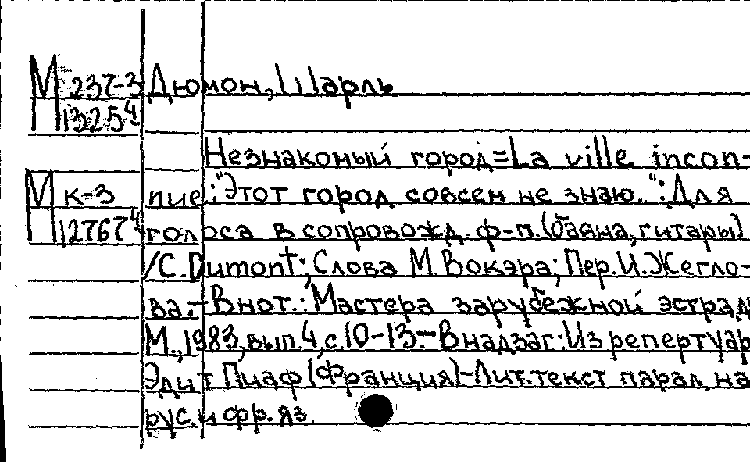 М 237-3 Дюмон, Шарль
13254
Незнакомый город=La ville incon-
М к-3 nue: "Этот город совсем не знаю.": Для
12767 голоса в сопровожд. ф-п. (баяна, гитары)
/C. Dumont; Слова М. Вокэра; Пер. И. Жегло-
ва.-В нот.: Мастера зарубежной эстрад
М., 1983, вып. 4, с. 10-13.-В надзаг: Из репертуар
Эдит Пиаф (Франция)-Лит. текст парал. на
рус. и фр. яз.